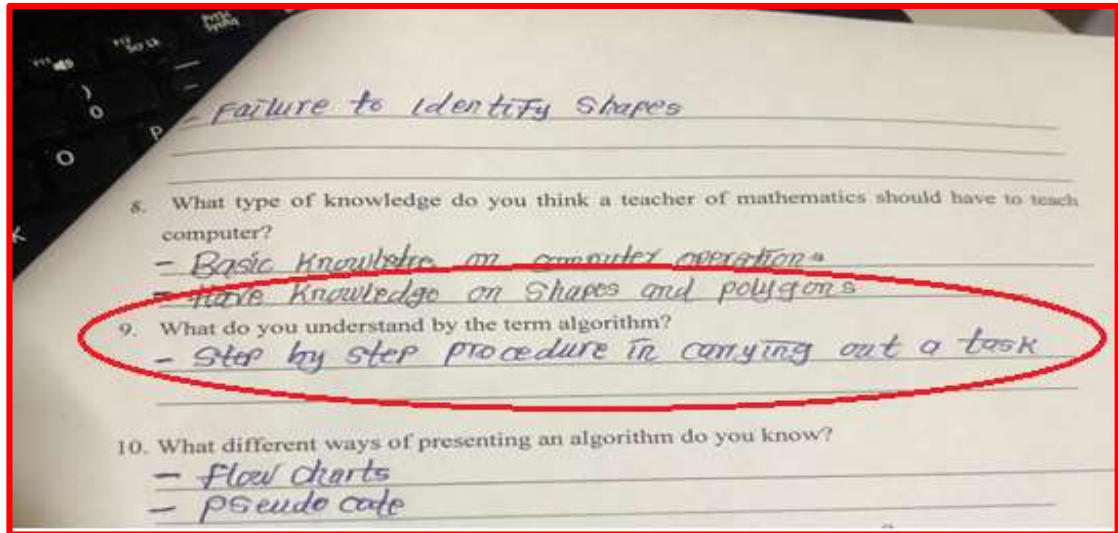 F11
F12
Scr Lk
PrtSc
SysRq
)
0
P
O
- Failure to Identify Shapes
8. What type of knowledge do you think a teacher of mathematics should have to teach
computer?
- Basic Knowledge on computer operations
- Have Knowledge on Shapes and polygons
9. What do you understand by the term algorithm?
- Step by step procedure in carrying out a task
10. What different ways of presenting an algorithm do you know?
- flow charts
- pseudo code